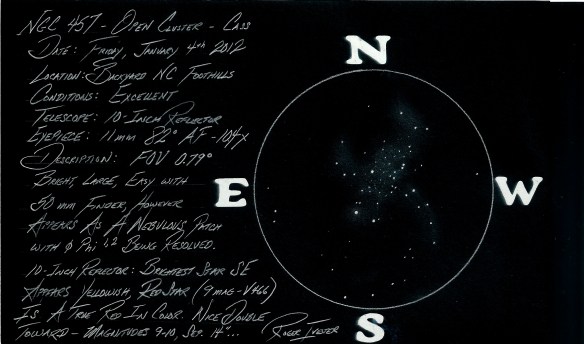 NGC 457 - Open Cluster - Cass
Date: Friday, January 4th 2012
Location: Backyard NC Foothills
Conditions: Excellent
Telescope: 10-Inch Reflector
Eyepiece: 11mm 82° AF - 104x
Description: FOV 0.79°
Bright, Large, Easy with
50 mm Finder, However
Appears As A Nebulous Patch
with φ Phi 1,2 Being Resolved.
10-Inch Reflector: Brightest Star SE
Appears Yellowish, Red Star (9 mag - V466)
Is A True Red In Color. Nice Double
Toward - Magnitudes 9-10, Sep. 14"...
Roger Ivester
N
E
W
S